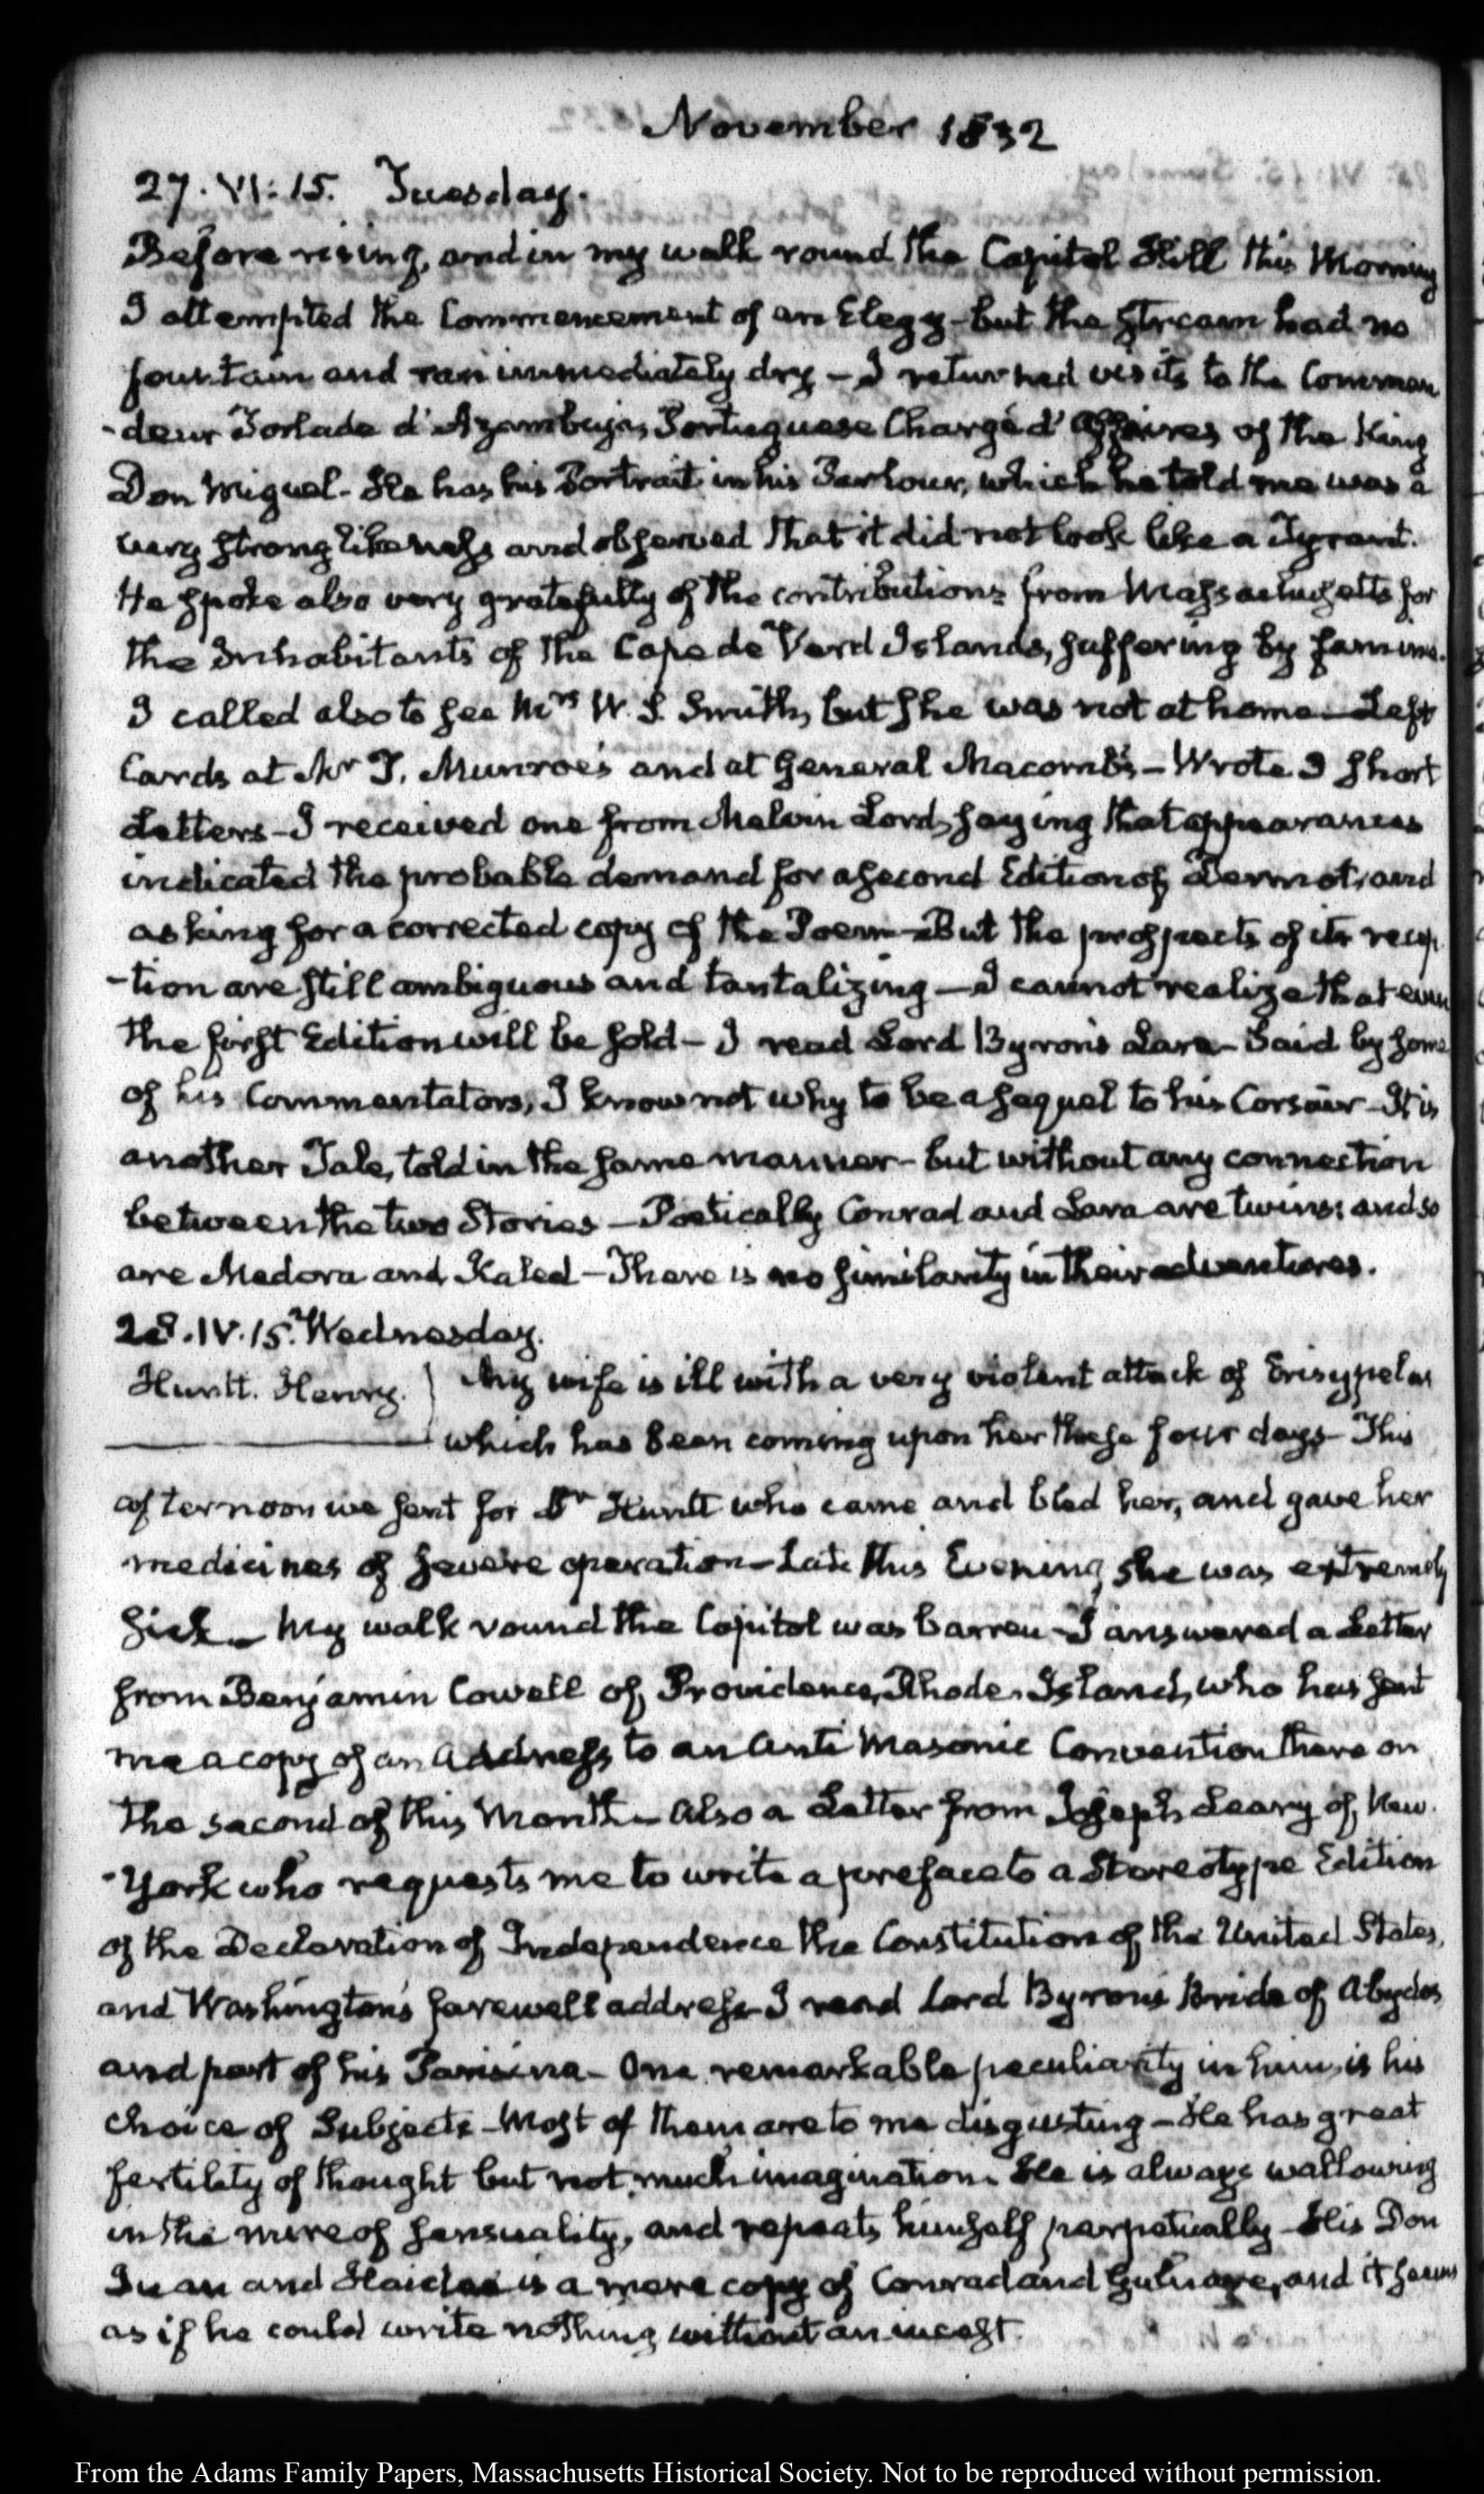 November 1832
27. VI: 15. Tuesday.
Before rising, and in my walk round the Capitol Hill this Morning
I attempted the Commencement of an Elegy - but the stream had no
fountain and ran immediately dry - I returned visits to the Comman
-deur Torlade d'Azambuja, Portuguese Chargé d'Affaires of the King
Don Miguel - He has his Portrait in his Parlour, which he told me was a
very strong likeness and observed that it did not look like a Tyrant.
He spoke also very gratefully of the contributions from Massachusetts for
the Inhabitants of the Cape de Verd Islands, suffering by famine.
I called also to see Mrs W. S. Smith, but she was not at home - Left
Cards at Mr T. Munroe's and at General Macomb's - Wrote 3 short
Letters - I received one from Melvin Lord, saying that appearances
indicated the probable demand for a second Edition of Dermot, and
asking for a corrected copy of the Poem - But the prospects of its recep
-tion are still ambiguous and tantalizing - I cannot realize that even
the first Edition will be sold - I read Lord Byron's Lara - Said by some
of his Commentators, I know not why to be a sequel to his Corsair - It is
another Tale, told in the same manner - but without any connection
between the two Stories - Poetically Conrad and Lara are twins; and so
are Medora and Kaled - There is no similarity in their adventures.
28. IV. 15. Wednesday.
Huntt. Henry. } My wife is ill with a very violent attack of Erisypelas
which has been coming upon her these four days - This
afternoon we sent for Dr Huntt who came and bled her, and gave her
medicines of severe operation - Late this Evening she was extremely
sick - My walk round the Capitol was barren - I answered a Letter
from Benjamin Cowell of Providence, Rhode-Island, who has sent
me a copy of an Address to an Anti Masonic Convention there on
the second of this Month - Also a Letter from Joseph Leary of New-
-York who requests me to write a preface to a Stereotype Edition
of the Declaration of Independence the Constitution of the United States,
and Washington's farewell address - I read Lord Byron's Bride of Abydos
and part of his Parisina - One remarkable peculiarity in him, is his
choice of Subjects - Most of them are to me disgusting - He has great
fertility of thought but not much imagination. He is always wallowing
in the mire of sensuality, and repeats himself perpetually - His Don
Juan and Haidee is a mere copy of Conrad and Gulnare, and it seems
as if he could write nothing without an incest.
From the Adams Family Papers, Massachusetts Historical Society. Not to be reproduced without permission.